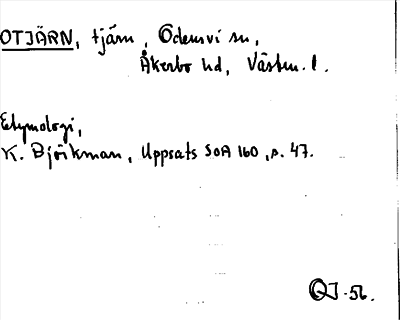 OTJÄRN, tjärn, Odensvi sn,
Åkerbo hd, Västm. l.
Etymologi,
K. Björkman, Uppsats SOA 160, s. 47.
OJ-56.